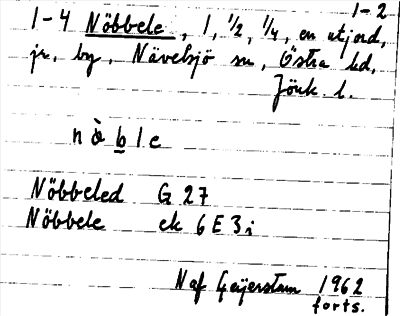 1-2
1-4 Nöbbele, 1, 1/2, 1/4, en utjord,
jr, by, Nävelsjö sn, Östra hd,
Jönk. l.
nò̀b̲le
Nöbbeled G 27
Nöbbele ek 6E3i
Naf Geijerstam 1962
forts.